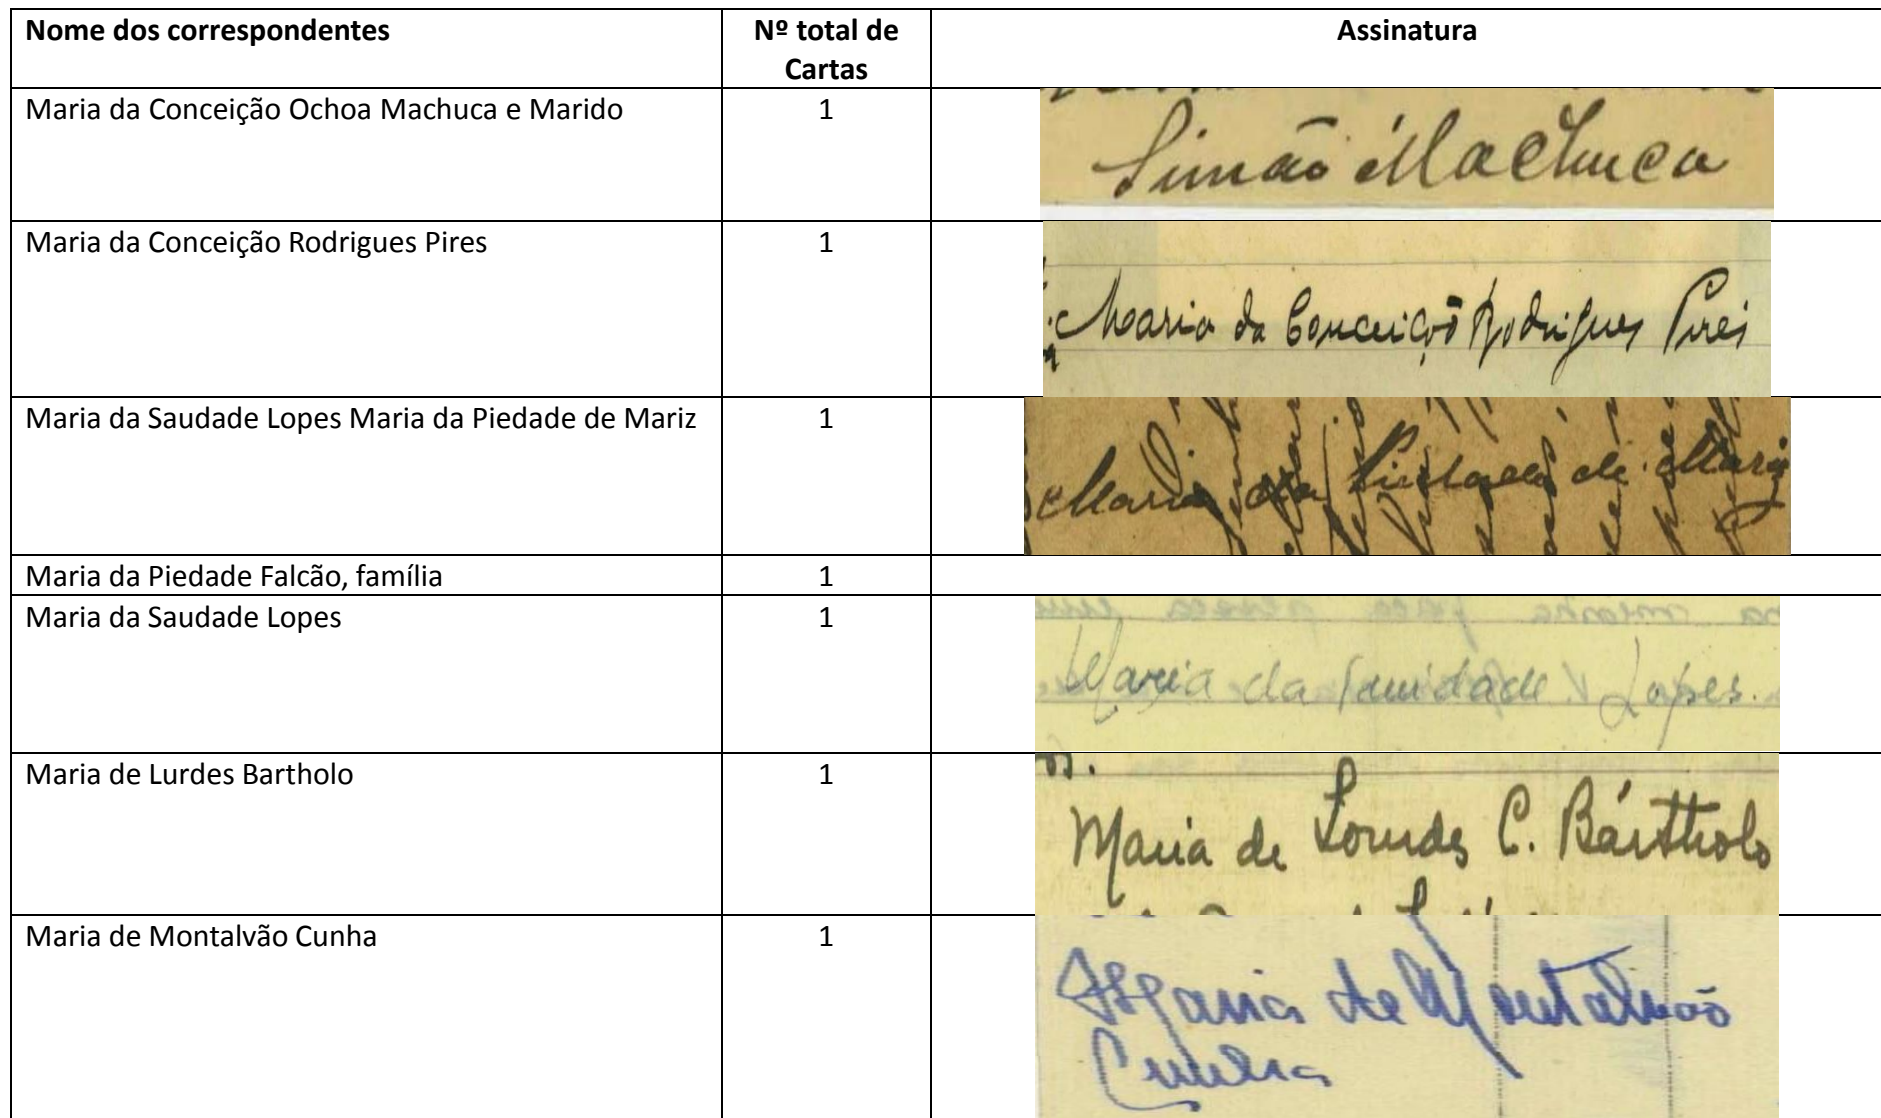 Nome dos correspondentes
Nº total de
Cartas
Assinatura
Maria da Conceição Ochoa Machuca e Marido
1
Simão Machuca
Maria da Conceição Rodrigues Pires
1
Maria da Conceição Rodrigues Pires
Maria da Saudade Lopes Maria da Piedade de Mariz
1
Maria da Piedade de Mariz
Maria da Piedade Falcão, família
1
Maria da Saudade Lopes
1
Maria da V. Lopes.
Maria de Lurdes Bartholo
1
os.
Maria de Lourdes C. Bártholo
Maria de Montalvão Cunha
1
Maria de Montalvão
Cunha